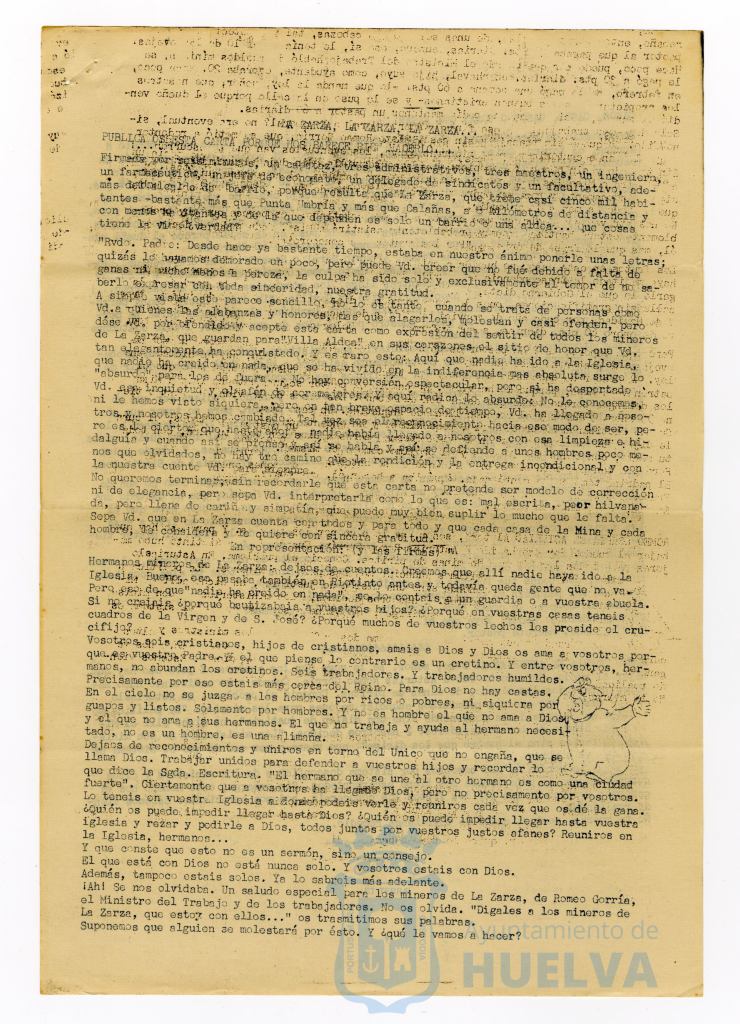 LA ZARZA, LA ZARZA, LA ZARZA...
PUBLICA ESTA CARTA PORQUE NOS PARECE
Firmada por seis mineros, un capataz, tres administrativos, tres maestros, un ingeniero,
un farmacéutico, un jefe de economato, un delegado de sindicatos y un facultativo, ade-
más del alcalde de barrio, porque resulta que La Zarza, que tiene casi cinco mil habi-
tantes -bastante más que Punta Umbría y más que Calañas, a kilómetros de distancia y
con menos habitantes y de la que depende- es solo un barrio o una aldea... ¡que cosas
tiene la vida, verdad?
"Rvdo. Padre: Desde hace ya bastante tiempo, estaba en nuestro ánimo ponerle unas letras;
quizás lo hayamos demorado un poco, pero puede Vd. creer que no fué debido a falta de
ganas ni mucho menos a pereza, la culpa ha sido solo y exclusivamente al temor de no sa-
berle expresar con toda sinceridad, nuestra gratitud.
A simple vista esto parece sencillo, no lo es tanto cuando se trata de personas como
Vd. a quienes las alabanzas y honores, más que alagarles, molestan y casi ofenden, pero
dése Vd. por ofendido y acepte esta carta como expresión del sentir de todos los mineros
de La Zarza, que guardan para "Villa Aldea" en sus corazones el sitio de honor que Vd.
tan elegantemente ha conquistado. Y es raro esto: Aquí que nadie ha ido a la Iglesia,
que nadie ha creido en nada, que se ha vivido en la indiferencia mas absoluta, surge lo
"absurdo" para los de fuera... No hay conversión espectacular, pero sí ha despertado
Vd. esa inquietud y afán de ser mejores. Y aquí radica lo absurdo: No le conocemos,
ni le hemos visto siquiera, pero en tan breve espacio de tiempo, Vd. ha llegado a noso-
tros y nosotros hemos cambiado. Tal vez sea el reconocimiento hacia ese modo de ser, pe-
ro es lo cierto que hasta ahora nadie había llegado a nosotros con esa limpieza e hi-
dalguía y cuando así se piensa y así se habla y así se defiende a unos hombres poco me-
nos que olvidados, no hay otro camino que la rendición y la entrega incondicional y con
la nuestra cuente Vd. para siempre.
No queremos terminar, sin recordarle que esta carta no pretende ser modelo de corrección
ni de elegancia, pero sepa Vd. interpretarla como lo que es: mal escrita, peor hilvana-
da, pero llena de cariño y simpatía, que puede muy bien suplir lo mucho que le falta.
Sepa Vd. que en La Zarza cuenta con todos y para todo y que cada casa de la Mina y cada
hombre, le considera y le quiere con sincera gratitud.
En representación: (y las firmas)
Hermanos mineros de La Zarza: dejaos de cuentos. Creemos que allí nadie haya ido a la
Iglesia. Bueno, eso pasaba también en Riotinto antes y todavía queda gente que no va.
Pero eso de que "nadie ha creido en nada", se lo contais a un guardia o a vuestra abuela.
Si no creiais ¿porqué bautizabais a vuestros hijos? ¿Porqué en vuestras casas teneis
cuadros de la Virgen y de S. José? ¿Porqué muchos de vuestros lechos los preside el cru-
cifijo?
Vosotros sois cristianos, hijos de cristianos, amais a Dios y Dios os ama a vosotros por-
que es vuestro Padre. Y el que piense lo contrario es un cretino. Y entre vosotros, her-
manos, no abundan los cretinos. Sois trabajadores. Y trabajadores humildes.
Precisamente por eso estais más cerca del Reino. Para Dios no hay castas.
En el cielo no se juzga a los hombres por ricos o pobres, ni siquiera por
guapos y listos. Solamente por hombres. Y no es hombre el que no ama a Dios
y el que no ama a sus hermanos. El que no trabaja y ayuda al hermano necesi-
tado, no es un hombre, es una alimaña.
Dejaos de reconocimientos y uniros en torno del Unico que no engaña, que se
llama Dios. Trabajar unidos para defender a vuestros hijos y recordar lo
que dice la Sgda. Escritura. "El hermano que se une al otro hermano es como una ciudad
fuerte". Ciertamente que a vosotros ha llegado Dios, pero no precisamente por vosotros.
Lo teneis en vuestra Iglesia a donde podeis verle y reuniros cada vez que os dé la gana.
¿Quién os puede impedir llegar hasta Dios? ¿Quién os puede impedir llegar hasta vuestra
iglesia y rezar y pedirle a Dios, todos juntos por vuestros justos afanes? Reuniros en
la Iglesia, hermanos...
Y que conste que esto no es un sermón, sino un consejo.
El que está con Dios no está nunca solo. Y vosotros estais con Dios.
Además, tampoco estais solos. Ya lo sabreis más adelante.
¡Ah! Se nos olvidaba. Un saludo especial para los mineros de La Zarza, de Romeo Gorría,
el Ministro del Trabajo y de los trabajadores. No os olvida. "Digales a los mineros de
La Zarza, que estoy con ellos..." os trasmitimos sus palabras.
Suponemos que alguien se molestará por ésto. Y ¿qué le vamos a hacer?
Ayuntamiento de
HUELVA